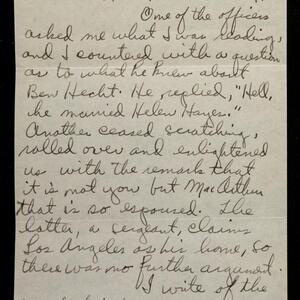 One of the officers
asked me what I was reading,
and I countered with a question
as to what he knew about
Ben Hecht. He replied, "Hell,
he married Helen Hayes."
Another ceased scratching,
rolled over and enlightened
us with the remark that
it is not you but MacArthur
that is so espoused. The
latter, a sergeant, claims
Los Angeles as his home, so
there was no further argument.
I write of the